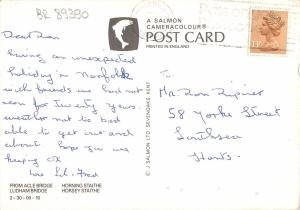 BR 89390
A SALMON
CAMERACOLOUR®
POST CARD
PRINTED IN ENGLAND
11P
Dear Ron
having an unexpected
holiday in Norfolk
with friends we had not
seen for twenty years.
weather not to bad
able to get out and
about. hope you are
keeping ok
Love Lil. Fred
To
Mr Ron
58 Yorke Street
Southsea
Hants.
© J SALMON LTD. SEVENOAKS. KENT
FROM ACLE BRIDGE HORNING STAITHE
LUDHAM BRIDGE HORSEY STAITHE
2-30-05-10